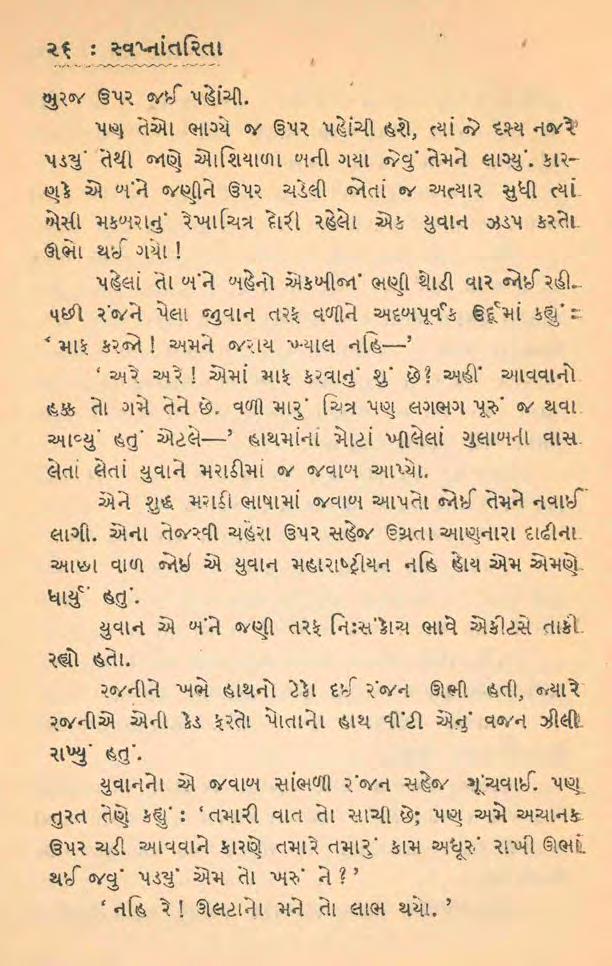 ૨૬ : સ્વપ્નાંતરિતા
બુરજ ઉપર જઈ પહોંચી.
પણ તેઓ ભાગ્યે જ ઉપર પહોંચી હશે, ત્યાં જે દૃશ્ય નજરે
પડયું તેથી જાણે ઓશિયાળા બની ગયા જેવું તેમને લાગ્યું. કાર-
ણકે એ બંને જણીને ઉપર ચડેલી જોતાં જ અત્યાર સુધી ત્યાં
બેસી મકબરાનું રેખાચિત્ર દોરી રહેલો એક યુવાન ઝડપ કરતો
ઊભો થઈ ગયો !
પહેલાં તો બંને બહેનો એકબીજા ભણી થોડી વાર જોઈ રહી.
પછી રંજને પેલા જુવાન તરફ વળીને અદબપૂર્વક ઉર્દૂમાં કહ્યું :
‘ માફ કરજો ! અમને જરાય ખ્યાલ નહિ—’
‘ અરે અરે ! એમાં માફ કરવાનું શું છે? અહીં આવવાનો
હક્ક તો ગમે તેને છે. વળી મારું ચિત્ર પણ લગભગ પૂરું જ થવા
આવ્યું હતું એટલે—’ હાથમાંનાં મોટાં ખીલેલાં ગુલાબની વાસ
લેતાં લેતાં યુવાને મરાઠીમાં જ જવાબ આપ્યો.
એને શુદ્ધ મરાઠી ભાષામાં જવાબ આપતો જોઈ તેમને નવાઈ
લાગી. એના તેજસ્વી ચહેરા ઉપર સહેજ ઉગ્રતા આણનારા દાઢીના
આછા વાળ જોઈ એ યુવાન મહારાષ્ટ્રીયન નહિ હોય એમ એમણે
ધાર્યું હતું.
યુવાન એ બંને જણી તરફ નિઃસંકોચ ભાવે એકીટસે તાકી
રહ્યો હતો.
રજનીને ખભે હાથનો ટેકો દઈ રંજન ઊભી હતી, જ્યારે
રજનીએ એની કેડ ફરતો પોતાનો હાથ વીંટી એનું વજન ઝીલી
રાખ્યું હતું.
યુવાનનો એ જવાબ સાંભળી રંજન સહેજ ગૂંચવાઈ. પણ
તુરત તેણે કહ્યું : ‘તમારી વાત તો સાચી છે; પણ અમે અચાનક
ઉપર ચડી આવવાને કારણે તમારે તમારું કામ અધૂરું રાખી ઊભાં
થઈ જવું પડયું એમ તો ખરું ને ?’
‘ નહિ રે ! ઊલટાનો મને તો લાભ થયો. ’